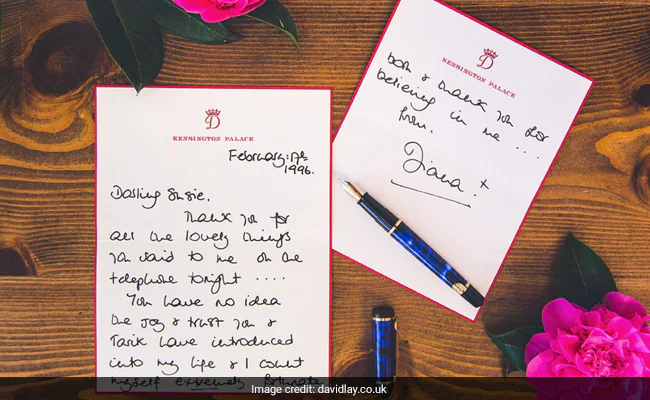 D
KENSINGTON PALACE
February: 17th
1996.
Darling Susie,
Thank you for
all the lovely things
you said to me on the
telephone tonight ....
You have no idea
the joy & trust you &
Tarik have introduced
into my life & I count
myself extremely fortunate
D
KENSINGTON PALACE
both & thank you for
believing in me ...
from,
Diana. x
Image credit: davidlay.co.uk